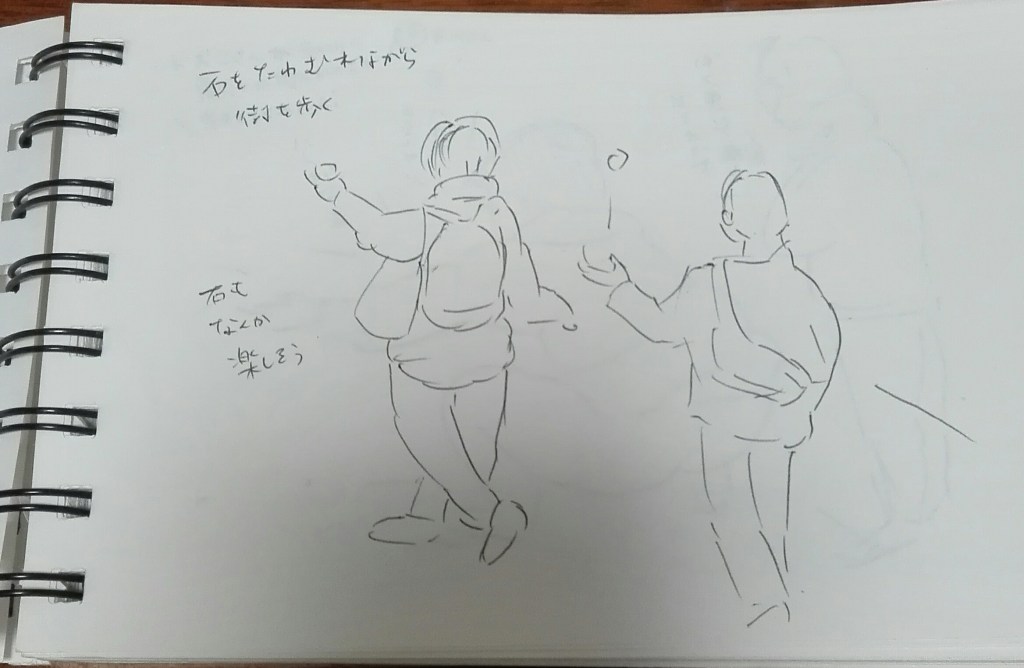 石とたわむれながら
街を歩く
石も
なんか
楽しそう